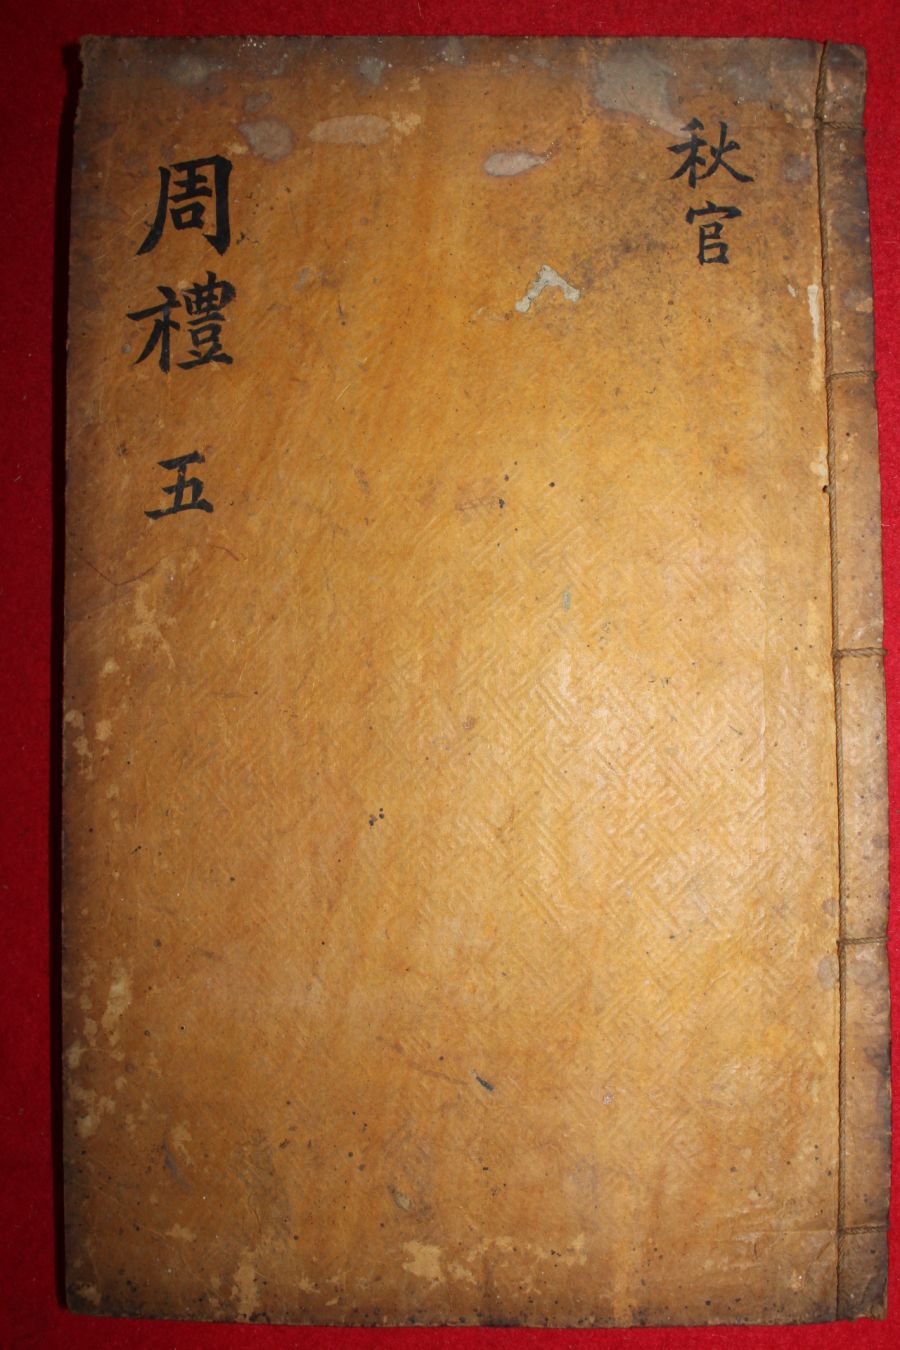 秋官
周禮 五